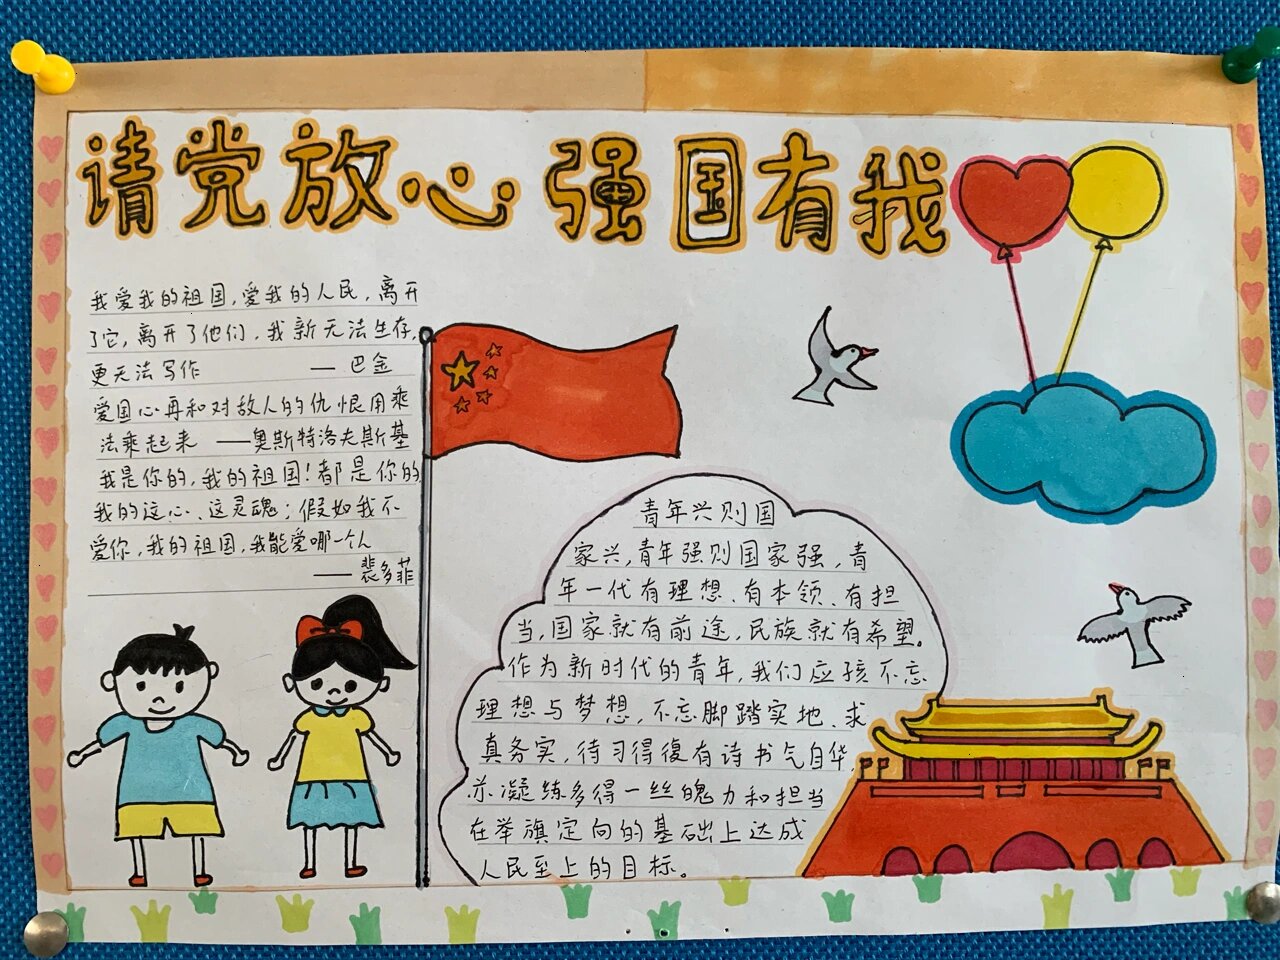 请党放心 强国有我
我爱我的祖国,爱我的人民,离开
了它,离开了他们,我新无法生存,
更无法写作 —— 巴金
爱国心再和对敌人的仇恨用乘
法乘起来 ——奥斯特洛夫斯基
我是你的,我的祖国!都是你的,
我的这心、这灵魂;假如我不
爱你,我的祖国,我能爱哪一个人
—— 裴多菲
青年兴则国
家兴,青年强则国家强,青
年一代有理想、有本领、有担
当,国家就有前途,民族就有希望。
作为新时代的青年,我们应孩不忘
理想与梦想,不忘脚踏实地、求
真务实,待习得復有诗书气自华,
亦凝练多得一丝魄力和担当
在举旗定向的基础上达成
人民至上的目标。